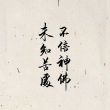 不信神佛
未知善處